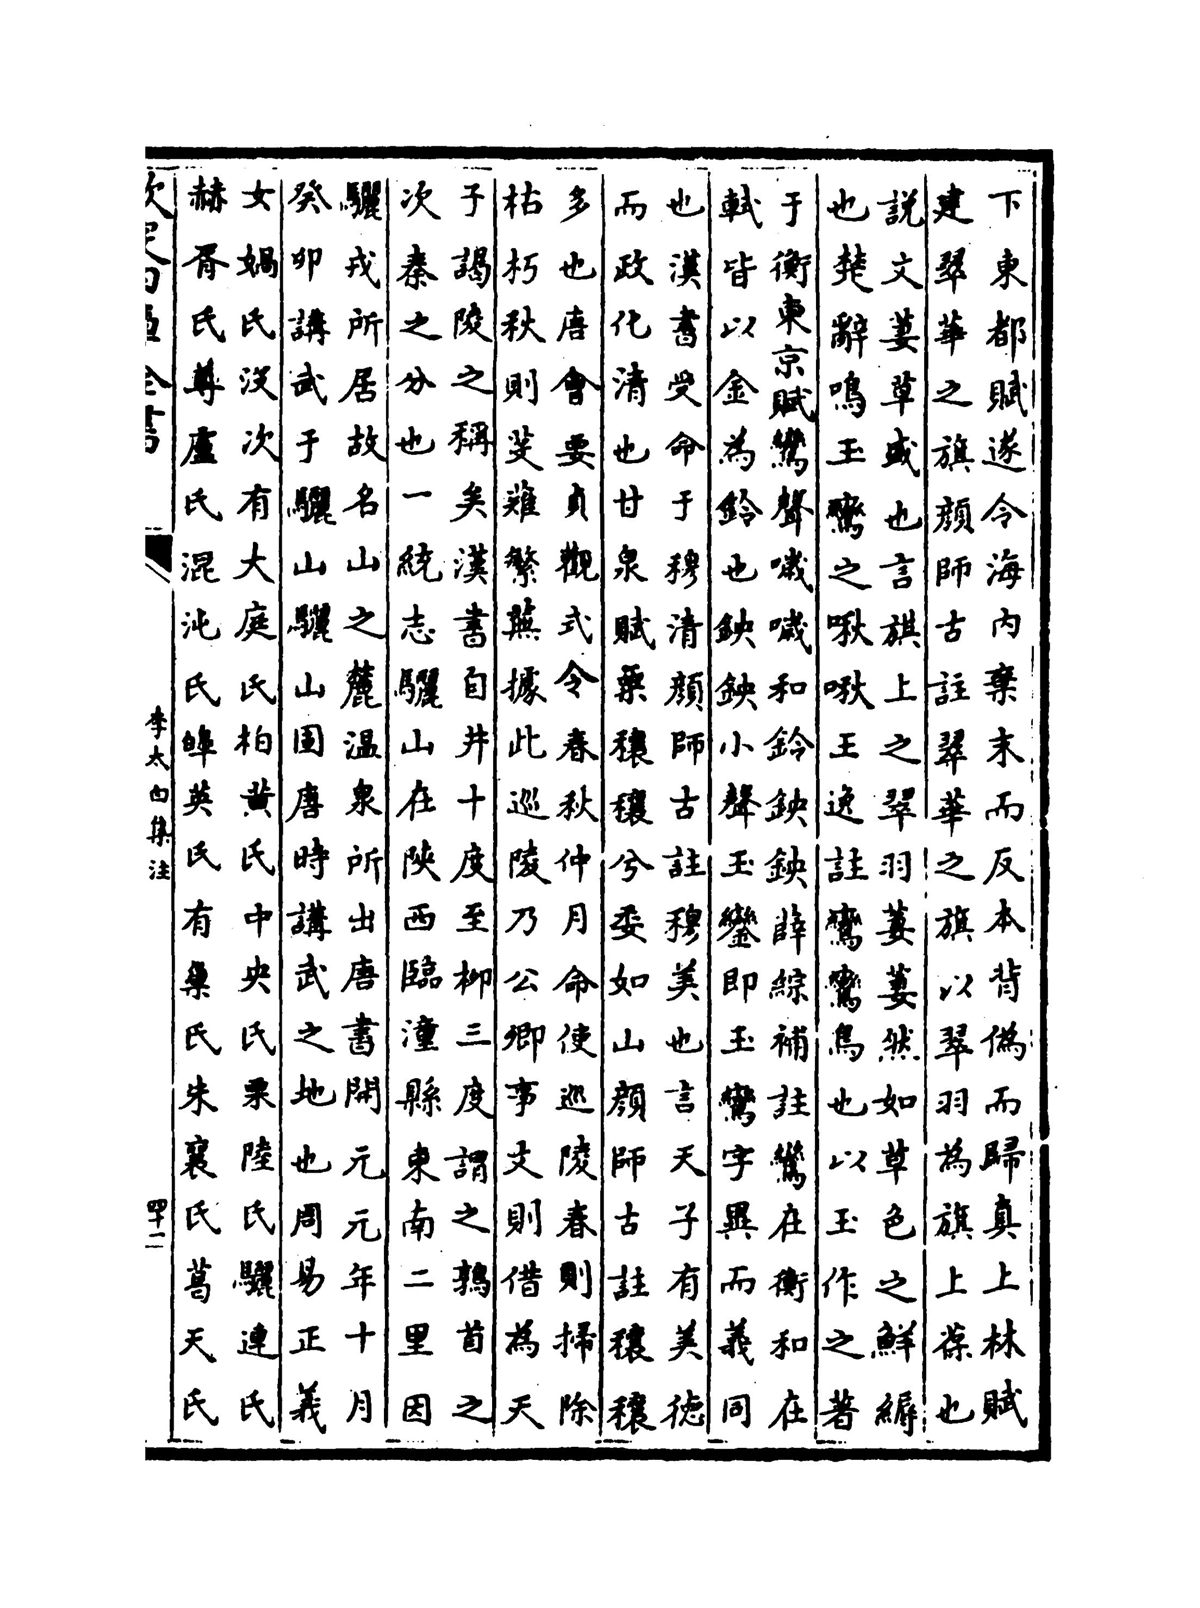 下東都賦遂令海内棄末而反本背偽而歸真上林賦
建翠華之旗顔師古註翠華之旗以翠羽為旗上葆也
説文萋草盛也言旗上之翠羽萋萋然如草色之鮮縟
也楚辭鳴玉鸞之啾啾王逸註鸞鸞鳥也以玉作之著
于衡東京賦鸞聲噦噦和鈴鉠鉠薛綜補註鸞在衡和在
軾皆以金為鈴也鉠鉠小聲玉鑾即玉鸞字異而義同
也漢書受命于穆清顔師古註穆美也言天子有美德
而政化清也甘泉賦粟穰穰兮委如山顔師古註穰穰
多也唐會要貞觀式令春秋仲月命使巡陵春則掃除
枯朽秋則芟薙繁蕪據此巡陵乃公卿事文則借為天
子謁陵之稱矣漢書自井十度至柳三度謂之鶉首之
次秦之分也一統志驪山在陜西臨潼縣東南二里因
驪戎所居故名山之麓温泉所出唐書開元元年十月
癸卯講武于驪山驪山圍唐時講武之地也周易正義
女媧氏沒次有大庭氏柏黄氏中央氏栗陸氏驪連氏
赫胥氏尊盧氏混沌氏皡英氏有巢氏朱襄氏葛天氏
欽定四庫全書
李太白集注
四十二